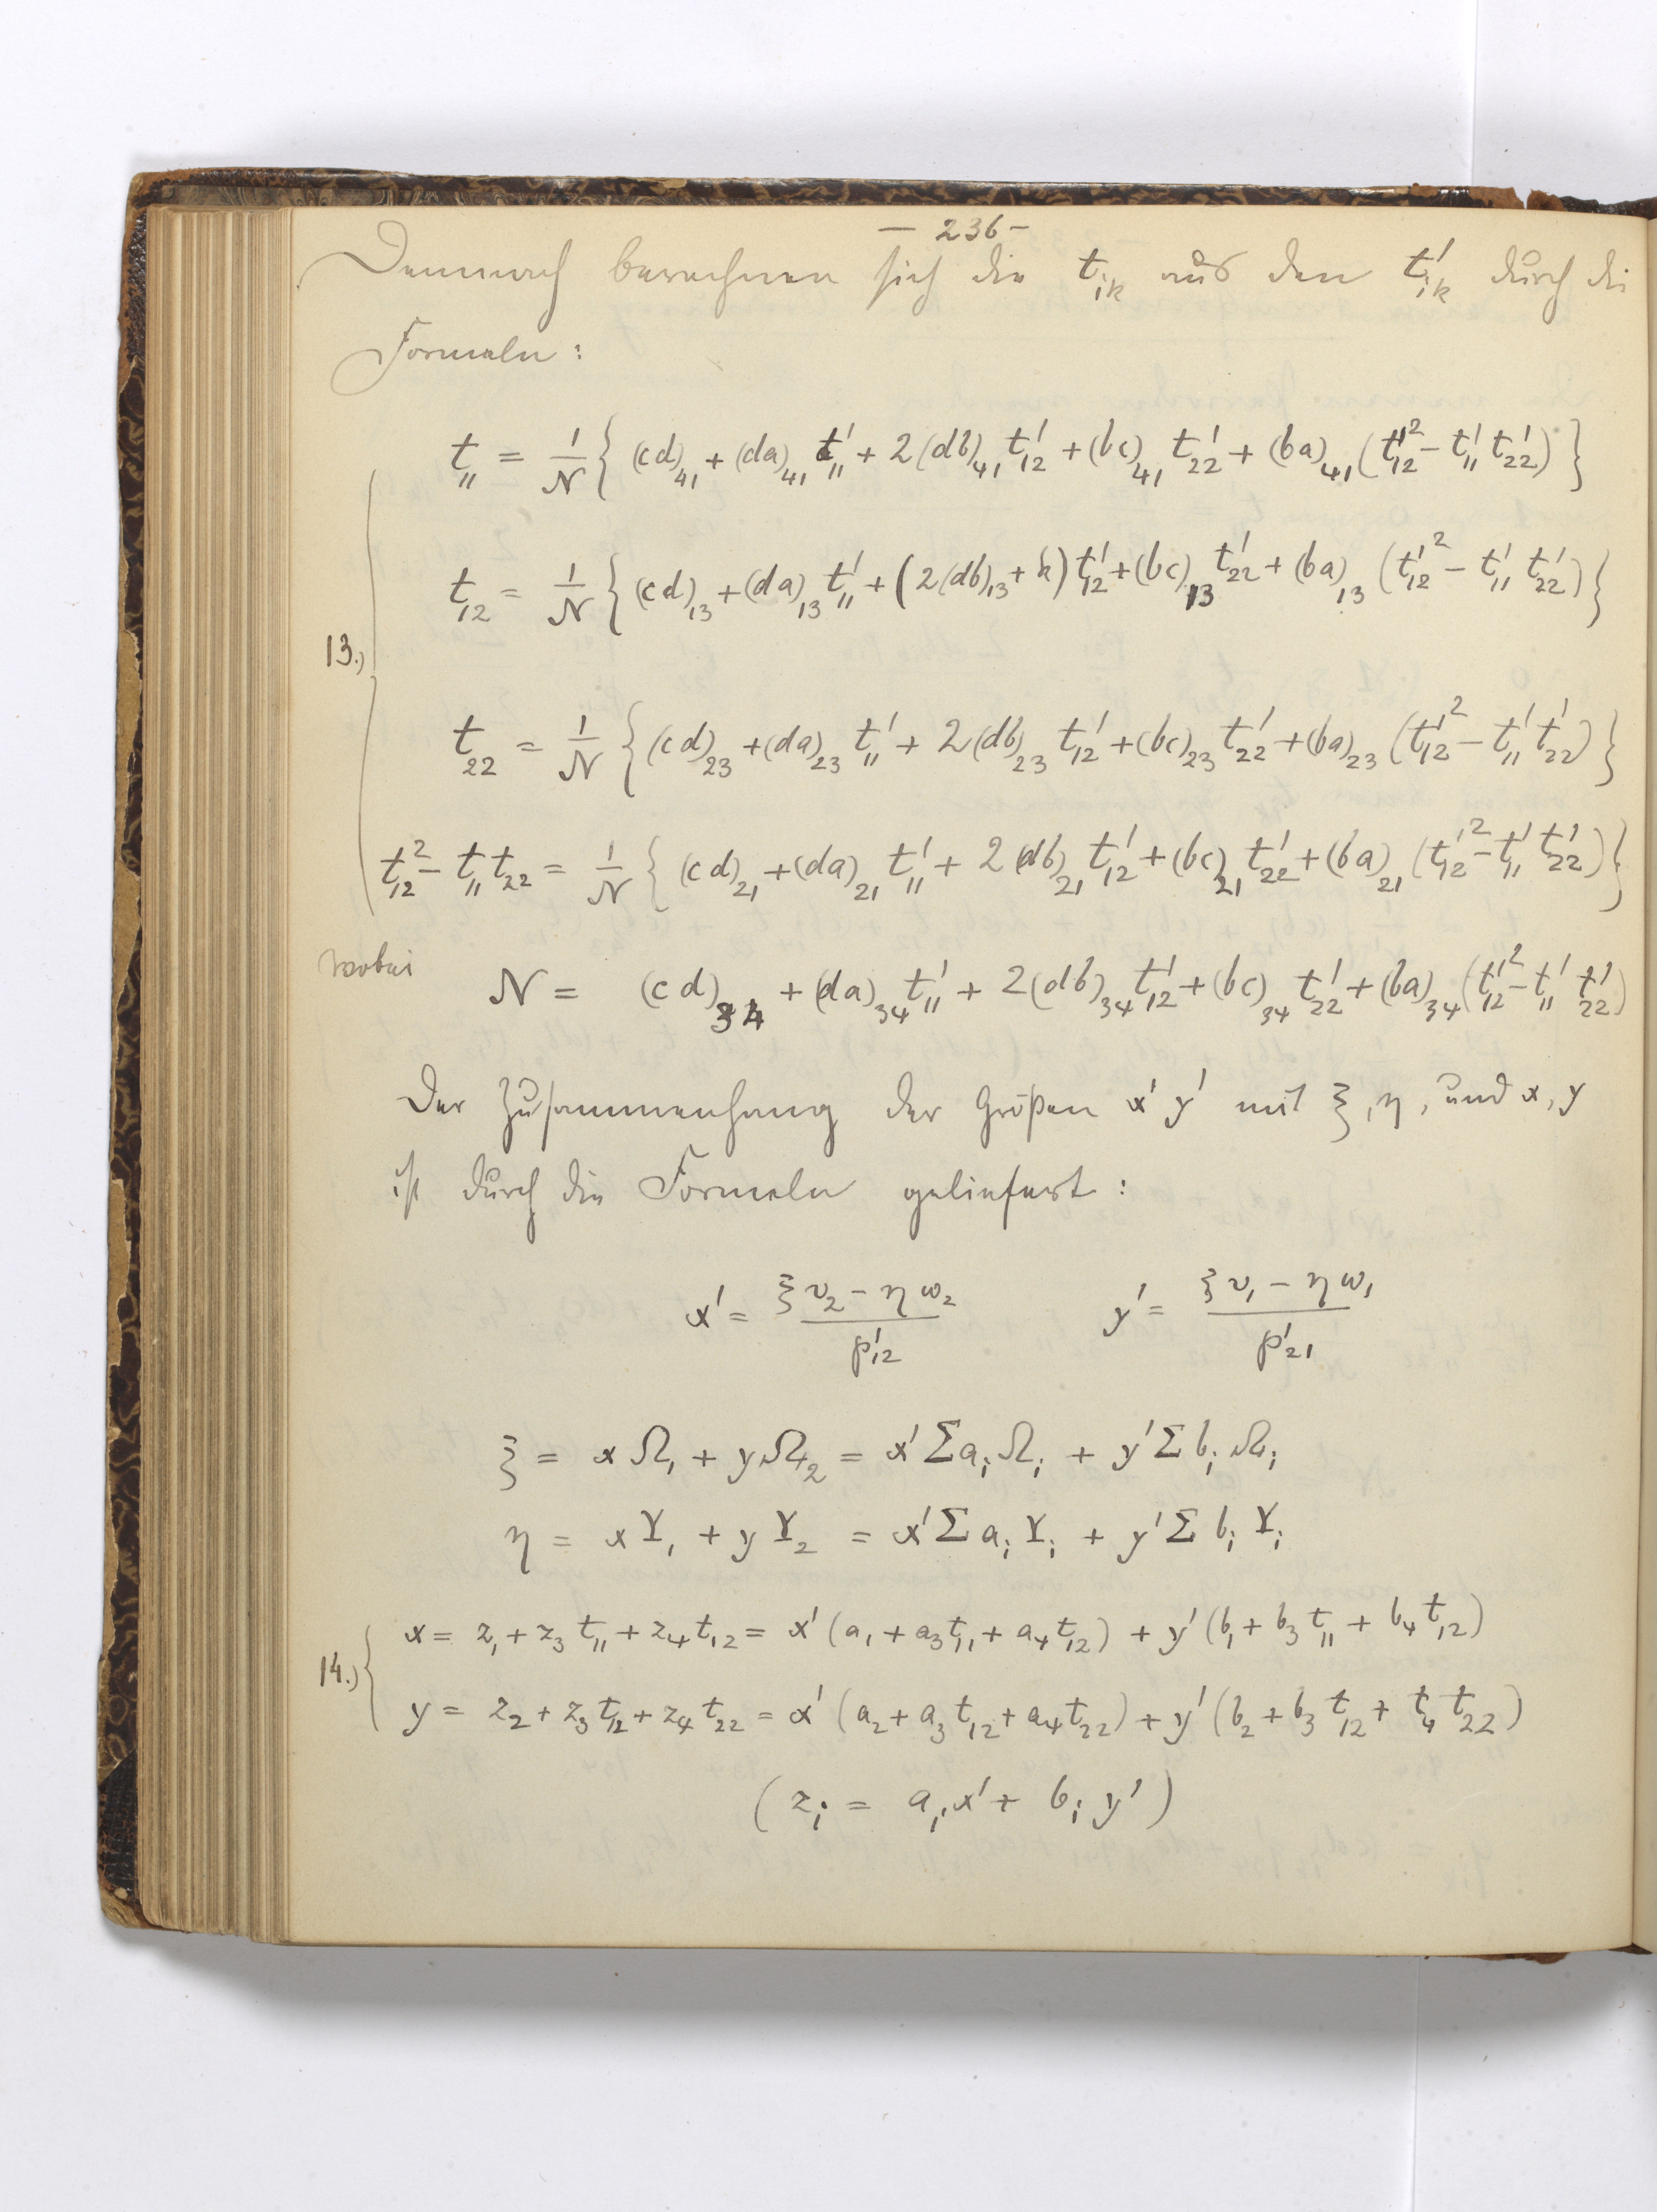 — 236 —
Demnach berechnen sich die t_{ik} aus den t'_{ik} durch die
Formeln:
t_{11} = \frac{1}{N} { (cd)_{41} + (da)_{41} t'_{11} + 2(db)_{41} t'_{12} + (bc)_{41} t'_{22} + (ba)_{41} (t'^2_{12} - t'_{11} t'_{22}) }
t_{12} = \frac{1}{N} { (cd)_{13} + (da)_{13} t'_{11} + (2(db)_{13} + k) t'_{12} + (bc)_{13} t'_{22} + (ba)_{13} (t'^2_{12} - t'_{11} t'_{22}) }
13.)
t_{22} = \frac{1}{N} { (cd)_{23} + (da)_{23} t'_{11} + 2(db)_{23} t'_{12} + (bc)_{23} t'_{22} + (ba)_{23} (t'^2_{12} - t'_{11} t'_{22}) }
t^2_{12} - t_{11} t_{22} = \frac{1}{N} { (cd)_{21} + (da)_{21} t'_{11} + 2(db)_{21} t'_{12} + (bc)_{21} t'_{22} + (ba)_{21} (t'^2_{12} - t'_{11} t'_{22}) }
wobei N = (cd)_{34} + (da)_{34} t'_{11} + 2(db)_{34} t'_{12} + (bc)_{34} t'_{22} + (ba)_{34} (t'^2_{12} - t'_{11} t'_{22})
Der Zusammenhang der Größen x' y' mit ξ, η, und x, y
ist durch die Formeln geliefert:
x' = \frac{ξ v_2 - η w_2}{p'_{12}} y' = \frac{ξ v_1 - η w_1}{p'_{21}}
ξ = x Ω_1 + y Ω_2 = x' Σ a_i Ω_i + y' Σ b_i Ω_i
η = x Υ_1 + y Υ_2 = x' Σ a_i Υ_i + y' Σ b_i Υ_i
14.) x = z_1 + z_3 t_{11} + z_4 t_{12} = x' (a_1 + a_3 t_{11} + a_4 t_{12}) + y' (b_1 + b_3 t_{11} + b_4 t_{12})
y = z_2 + z_3 t_{12} + z_4 t_{22} = x' (a_2 + a_3 t_{12} + a_4 t_{22}) + y' (b_2 + b_3 t_{12} + t_4 t_{22})
(z_i = a_i x' + b_i y')